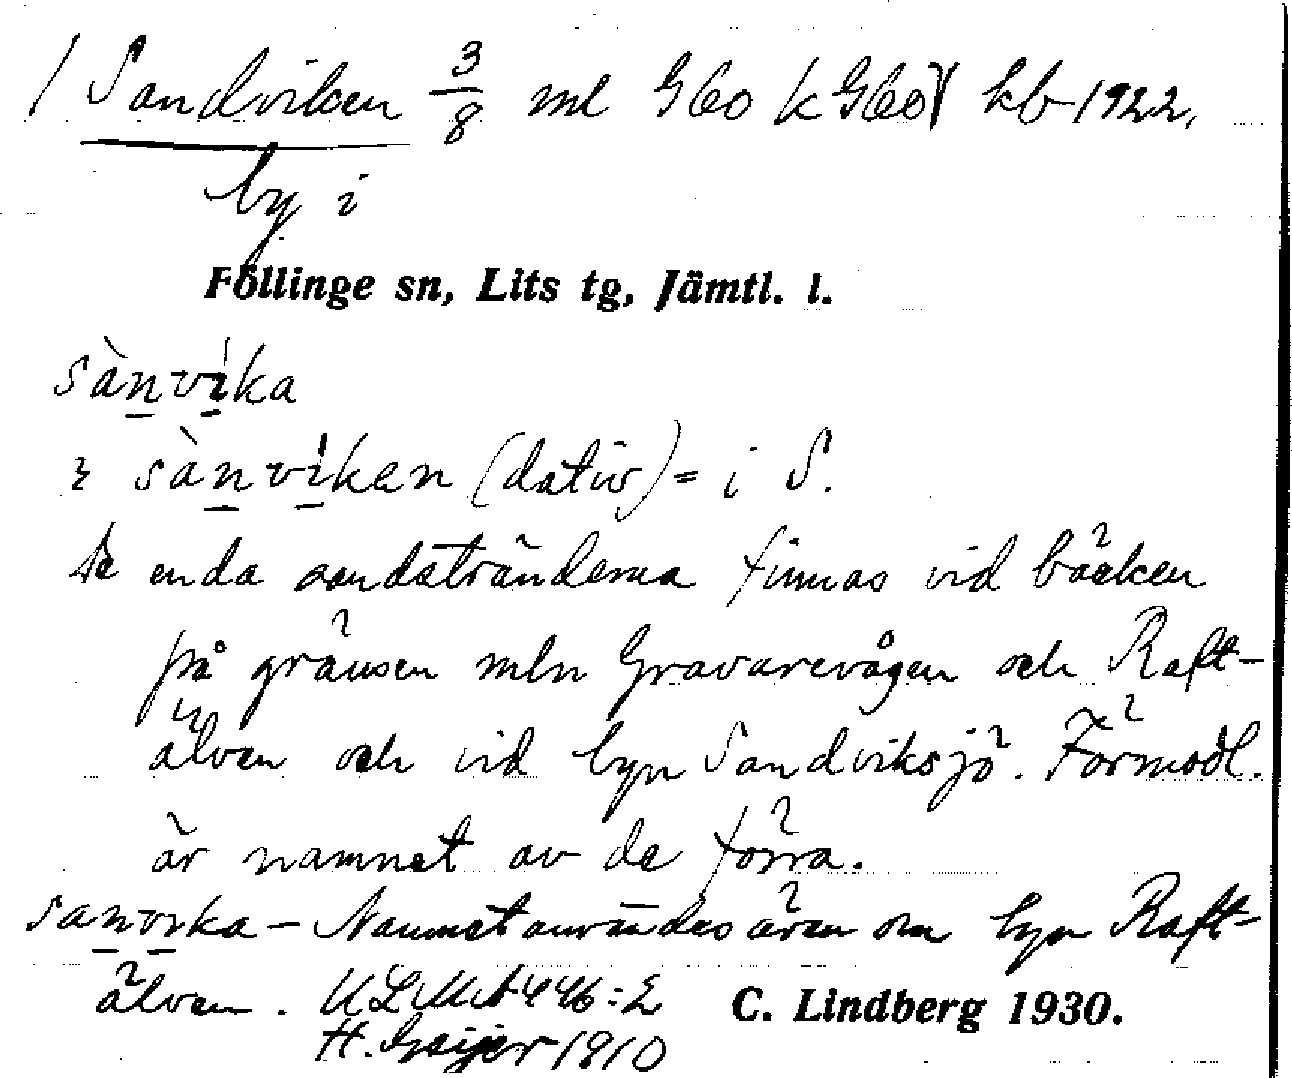 / Sandviken 3/8 ml G60 k G60 kb 1922,
by i
Föllinge sn, Lits tg, Jämtl. l.
sànvika
sànviken (dativ) = i S.
De enda sandstränderna finnas vid bäcken
på gränsen mln Gravarevågen och Raft-
älven och vid byn Sandviksjö. Förmodl.
är namnet av de förra.
sanvika – Namnet användes även om byn Raft-
älven. ULMA 446:2 C. Lindberg 1930.
H. Geijer 1910